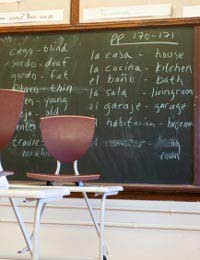 pp 170-171
cago - blind
sordo - deaf
gordo - fat
flaco - thin
- young
- old
la casa - house
la cocina - kitchen
el baño - bath
la sala - livingroom
el garaje - garage
habitación - bedroom